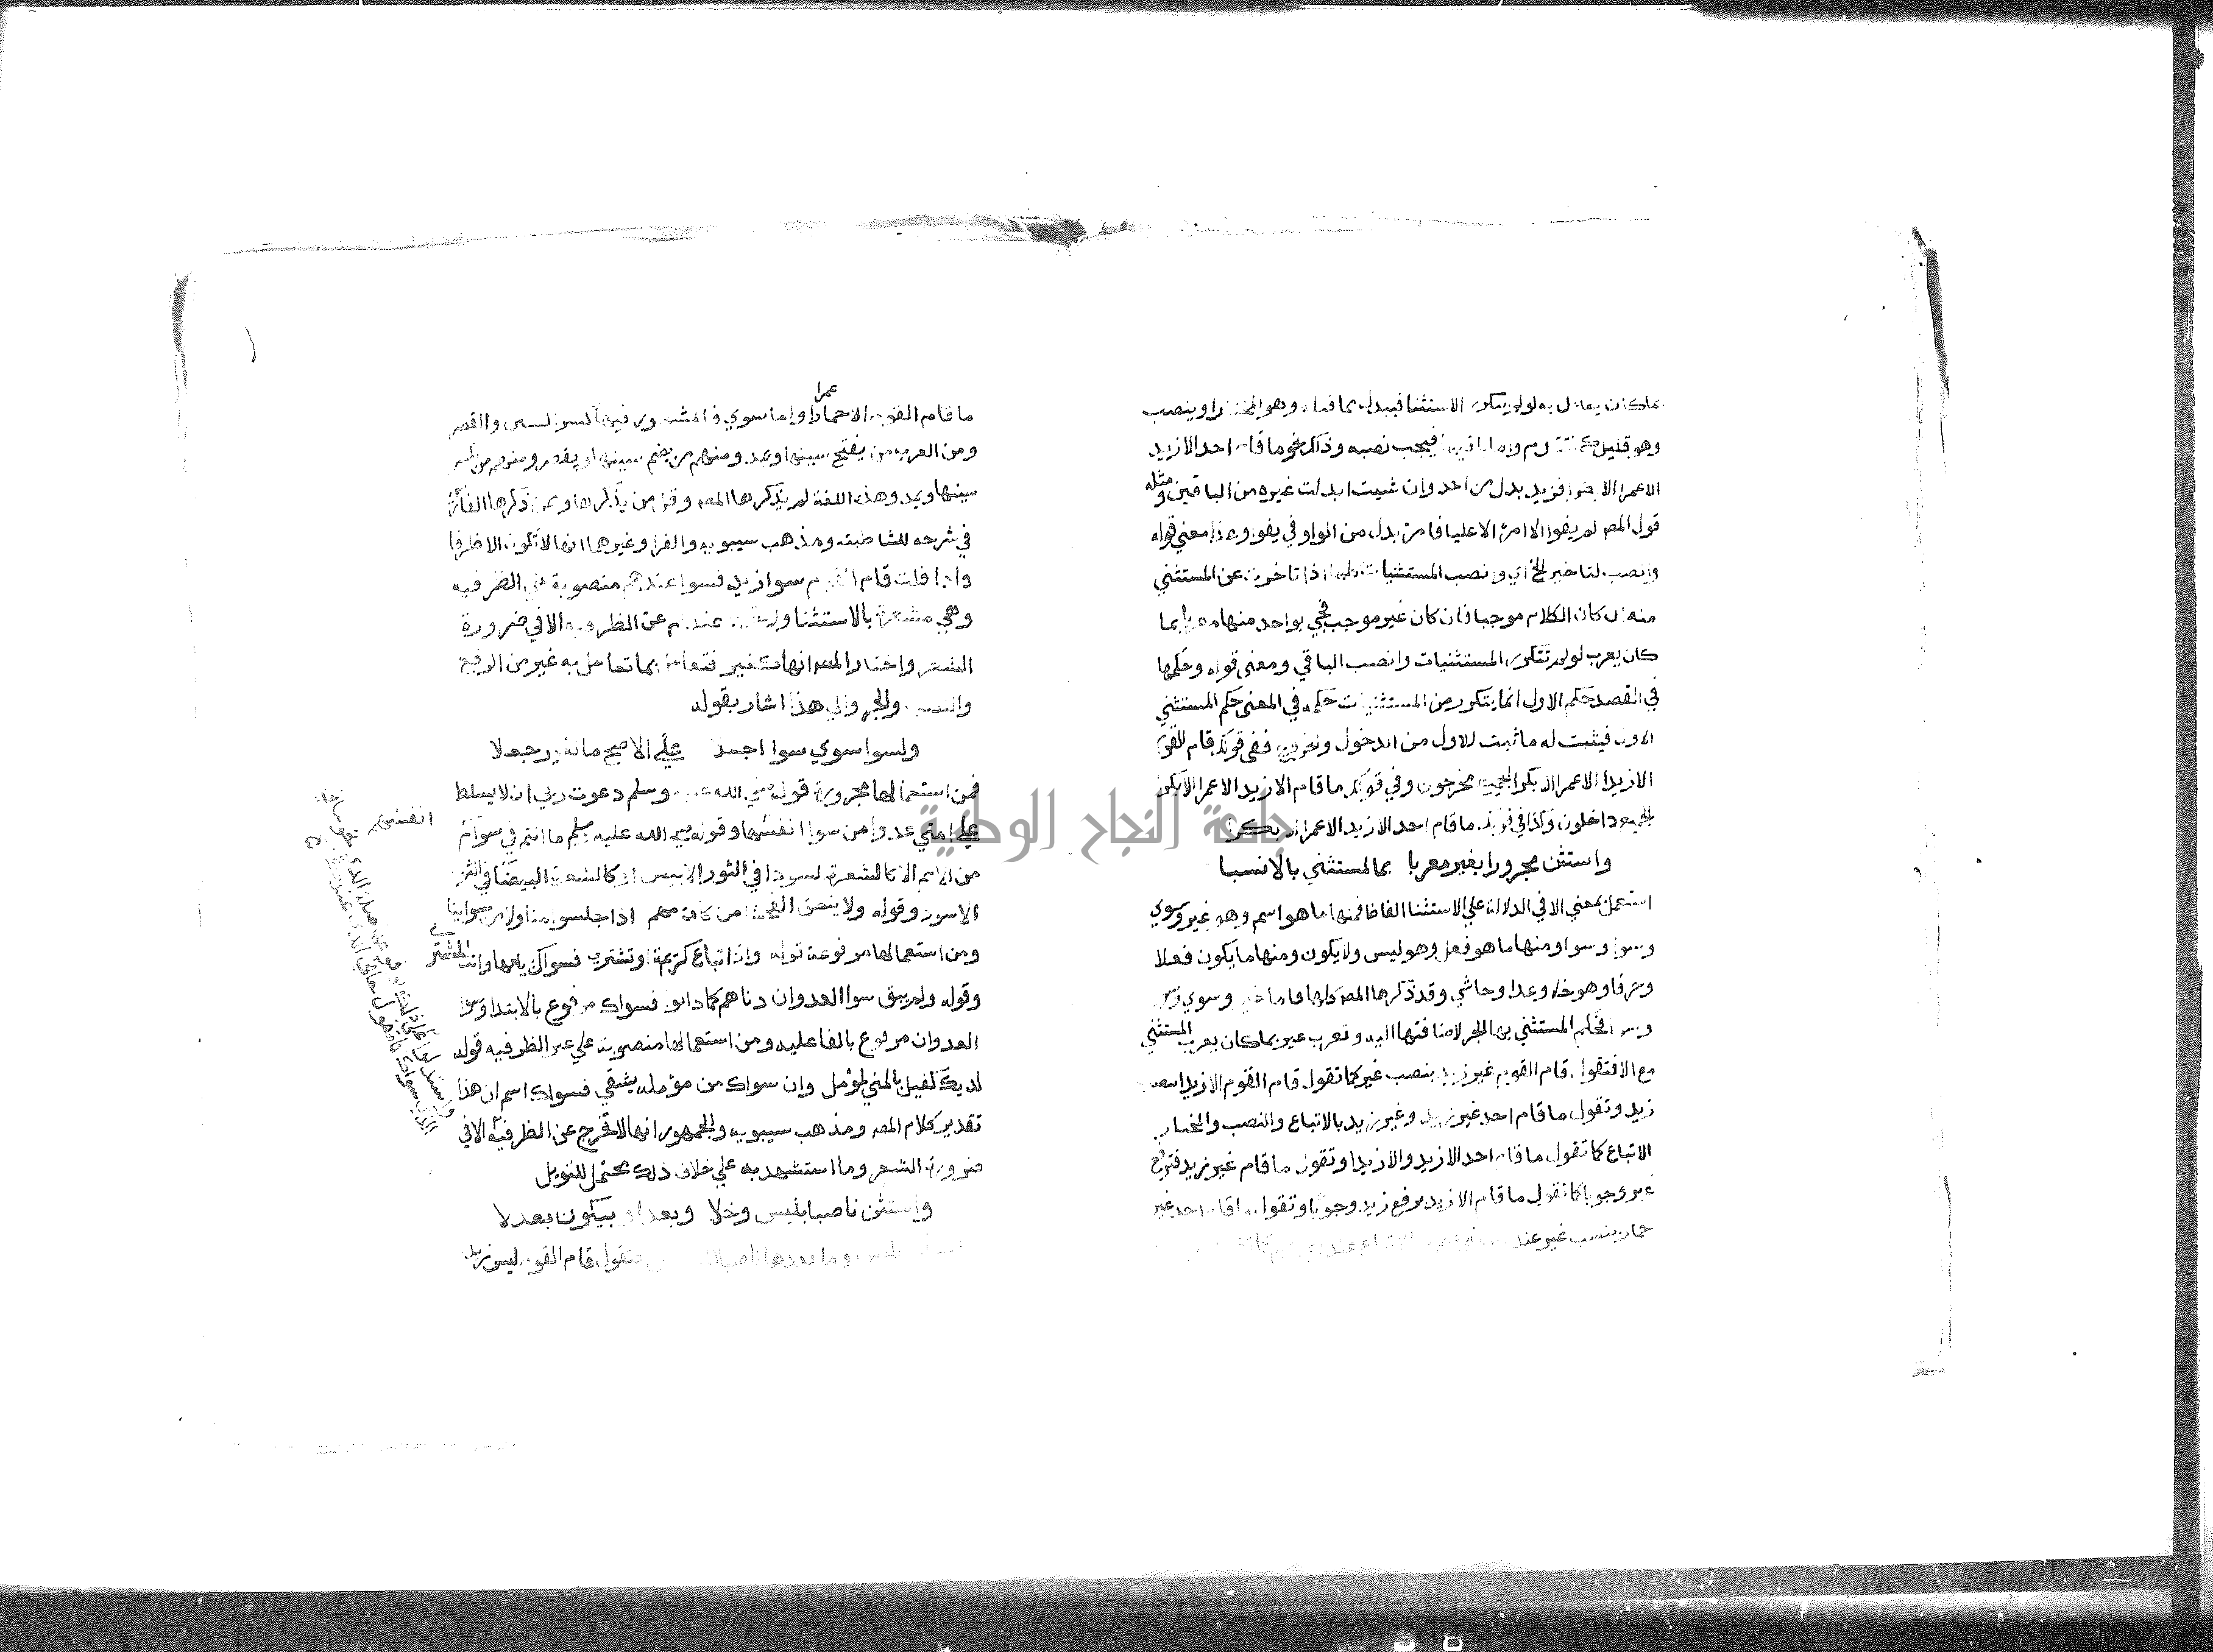 بما كان يعامل به لو لم يتكرر الاستثنا فيبدل مما قبله وهو المختار او ينصب
وهو قليل كما تقدم واما باقيها فيجب نصبه وذلك نحو ما قام احد الا زيد
الا عمرا الا بكرا فزيد بدل من احد وان شيت ابدلت غيره من الباقين ومثله
قول المص لم يفوا الا امرؤ الا عليا فامرؤ بدل من الواو في يفوا وهذا معني قوله
وانصب لتاخير الخ اي وانصب المستثنيات كلها اذا تاخرت عن المستثني
منه ان كان الكلام موجبا فان كان غير موجب فجي بواحد منها معربا بما
كان يعرب لو لم تتكرر المستثنيات وانصب الباقي ومعني قوله وحكمها
في القصد حكم الاول انما يتكرر من المستثنيات حكمه في المعني حكم المستثني
الاول فيثبت له ما ثبت للاول من الدخول والخروج ففي قولك قام القوم
الا زيدا الا عمرا الا بكرا الجميع مخرجون وفي قولك ما قام الا زيد الا عمرا الا بكرا
الجميع داخلون وكذا في قولك ما قام احد الا زيد الا عمرا الا بكرا
واستثن مجرورا بغير معربا بما لمستثني بالا نسبا
استعمل بمعني الا في الدلالة علي الاستثنا الفاظ فمنها ما هو اسم وهو غير وسوي
وسوا وسوا ومنها ما هو فعل وهو ليس ولا يكون ومنها ما يكون فعلا
وحرفا وهو خلا وعدا وحاشي وقد ذكرها المص كلها فاما غير وسوي
فحكم المستثني بها الجر لاضافتها اليه وتعرب غير بما كان يعرب المستثني
مع الا فتقول قام القوم غير زيد بنصب غير كما تقول قام القوم الا زيدا بنصب
زيد وتقول ما قام احد غير زيد وغير زيد بالاتباع والنصب والمختار
الاتباع كما تقول ما قام احد الا زيد والا زيدا وتقول ما قام غير زيد فترفع
غير وجوبا كما تقول ما قام الا زيد برفع زيد وجوبا وتقول ما قام احد غير
حمار بنصب غير عند
عمرا
ما قام القوم الا حمارا واما سوي فالمشهور فيها كسر السين والقصر
ومن العرب من يفتح سينها ويمد ومنهم من يضم سينها ويقصر ومنهم من يكسر
سينها ويمد وهذه اللغة لم يذكرها المص وقل من يذكرها وممن ذكرها الفاسي
في شرحه للشاطبية ومذهب سيبويه والفرا وغيرهما انها لا تكون الا ظرفا
واذا قلت قام القوم سوا زيد فسوا عندهم منصوبة علي الظرفيه
وهي مشعرة بالاستثنا ولا تخرج عندهم عن الظرفيه الا في ضرورة
الشعر واختار المص انها كغير فتعامل بما تعامل به غير من الرفع
والنصب والجر والي هذا اشار بقوله
ولسوا سوي سوا اجعلا علي الاصح ما لغير جعلا
فمن استعمالها مجرورة قوله صلي الله عليه وسلم دعوت ربي ان لا يسلط
علي امتي عدوا من سوا انفسها وقوله صلي الله عليه وسلم ما انتم في سواكم
من الامم الا كالشعرة السودا في الثور الابيض او كالشعرة البيضا في الثور
الاسود وقوله ولا ينطق الفحشا من كان منهم اذا جلسوا منا ولا من سواينا
ومن استعمالها مرفوعة قوله واذا تباع كريمة او تشتري فسواك بايعها وانت المشتري
وقوله ولم يبق سوا العدوان دناهم كما دانوا فسواك مرفوع بالابتدا وسوا
العدوان مرفوع بالفاعليه ومن استعمالها منصوبة علي غير الظرفيه قوله
لديك كفيل بالمني لمؤمل وان سواك من مؤمله يشقي فسواك اسم ان هذا
تقدير كلام المص ومذهب سيبويه والجمهور انها لا تخرج عن الظرفيه الا في
ضرورة الشعر وما استشهد به علي خلاف ذلك محتمل للتويل
واستثن ناصبا بليس وخلا وبعدا وبيكون بعد لا
وما بعدها ناصبا فتقول قام القوم ليس زيدا
انفسهم
جامعة النجاح الوطنية